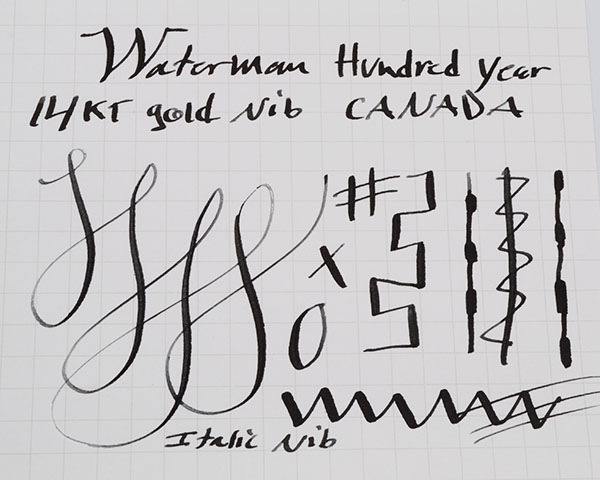 Waterman Hundred Year
14KT gold Nib CANADA
#
x
o
Italic Nib